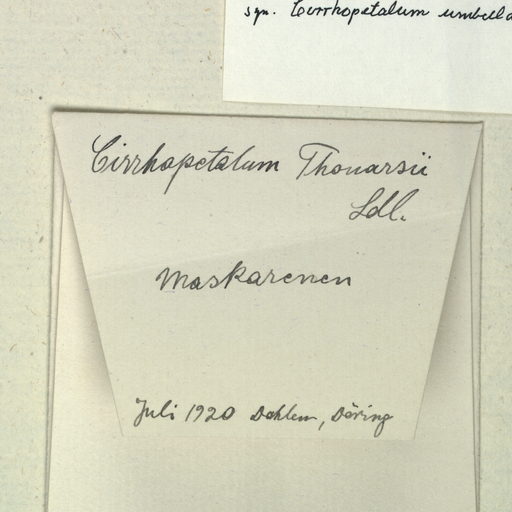 syn. Cirrhopetalum
Cirrhopetalum Thouarsii
Ldl.
Maskarenen
Juli 1920 Dahlem, Döring